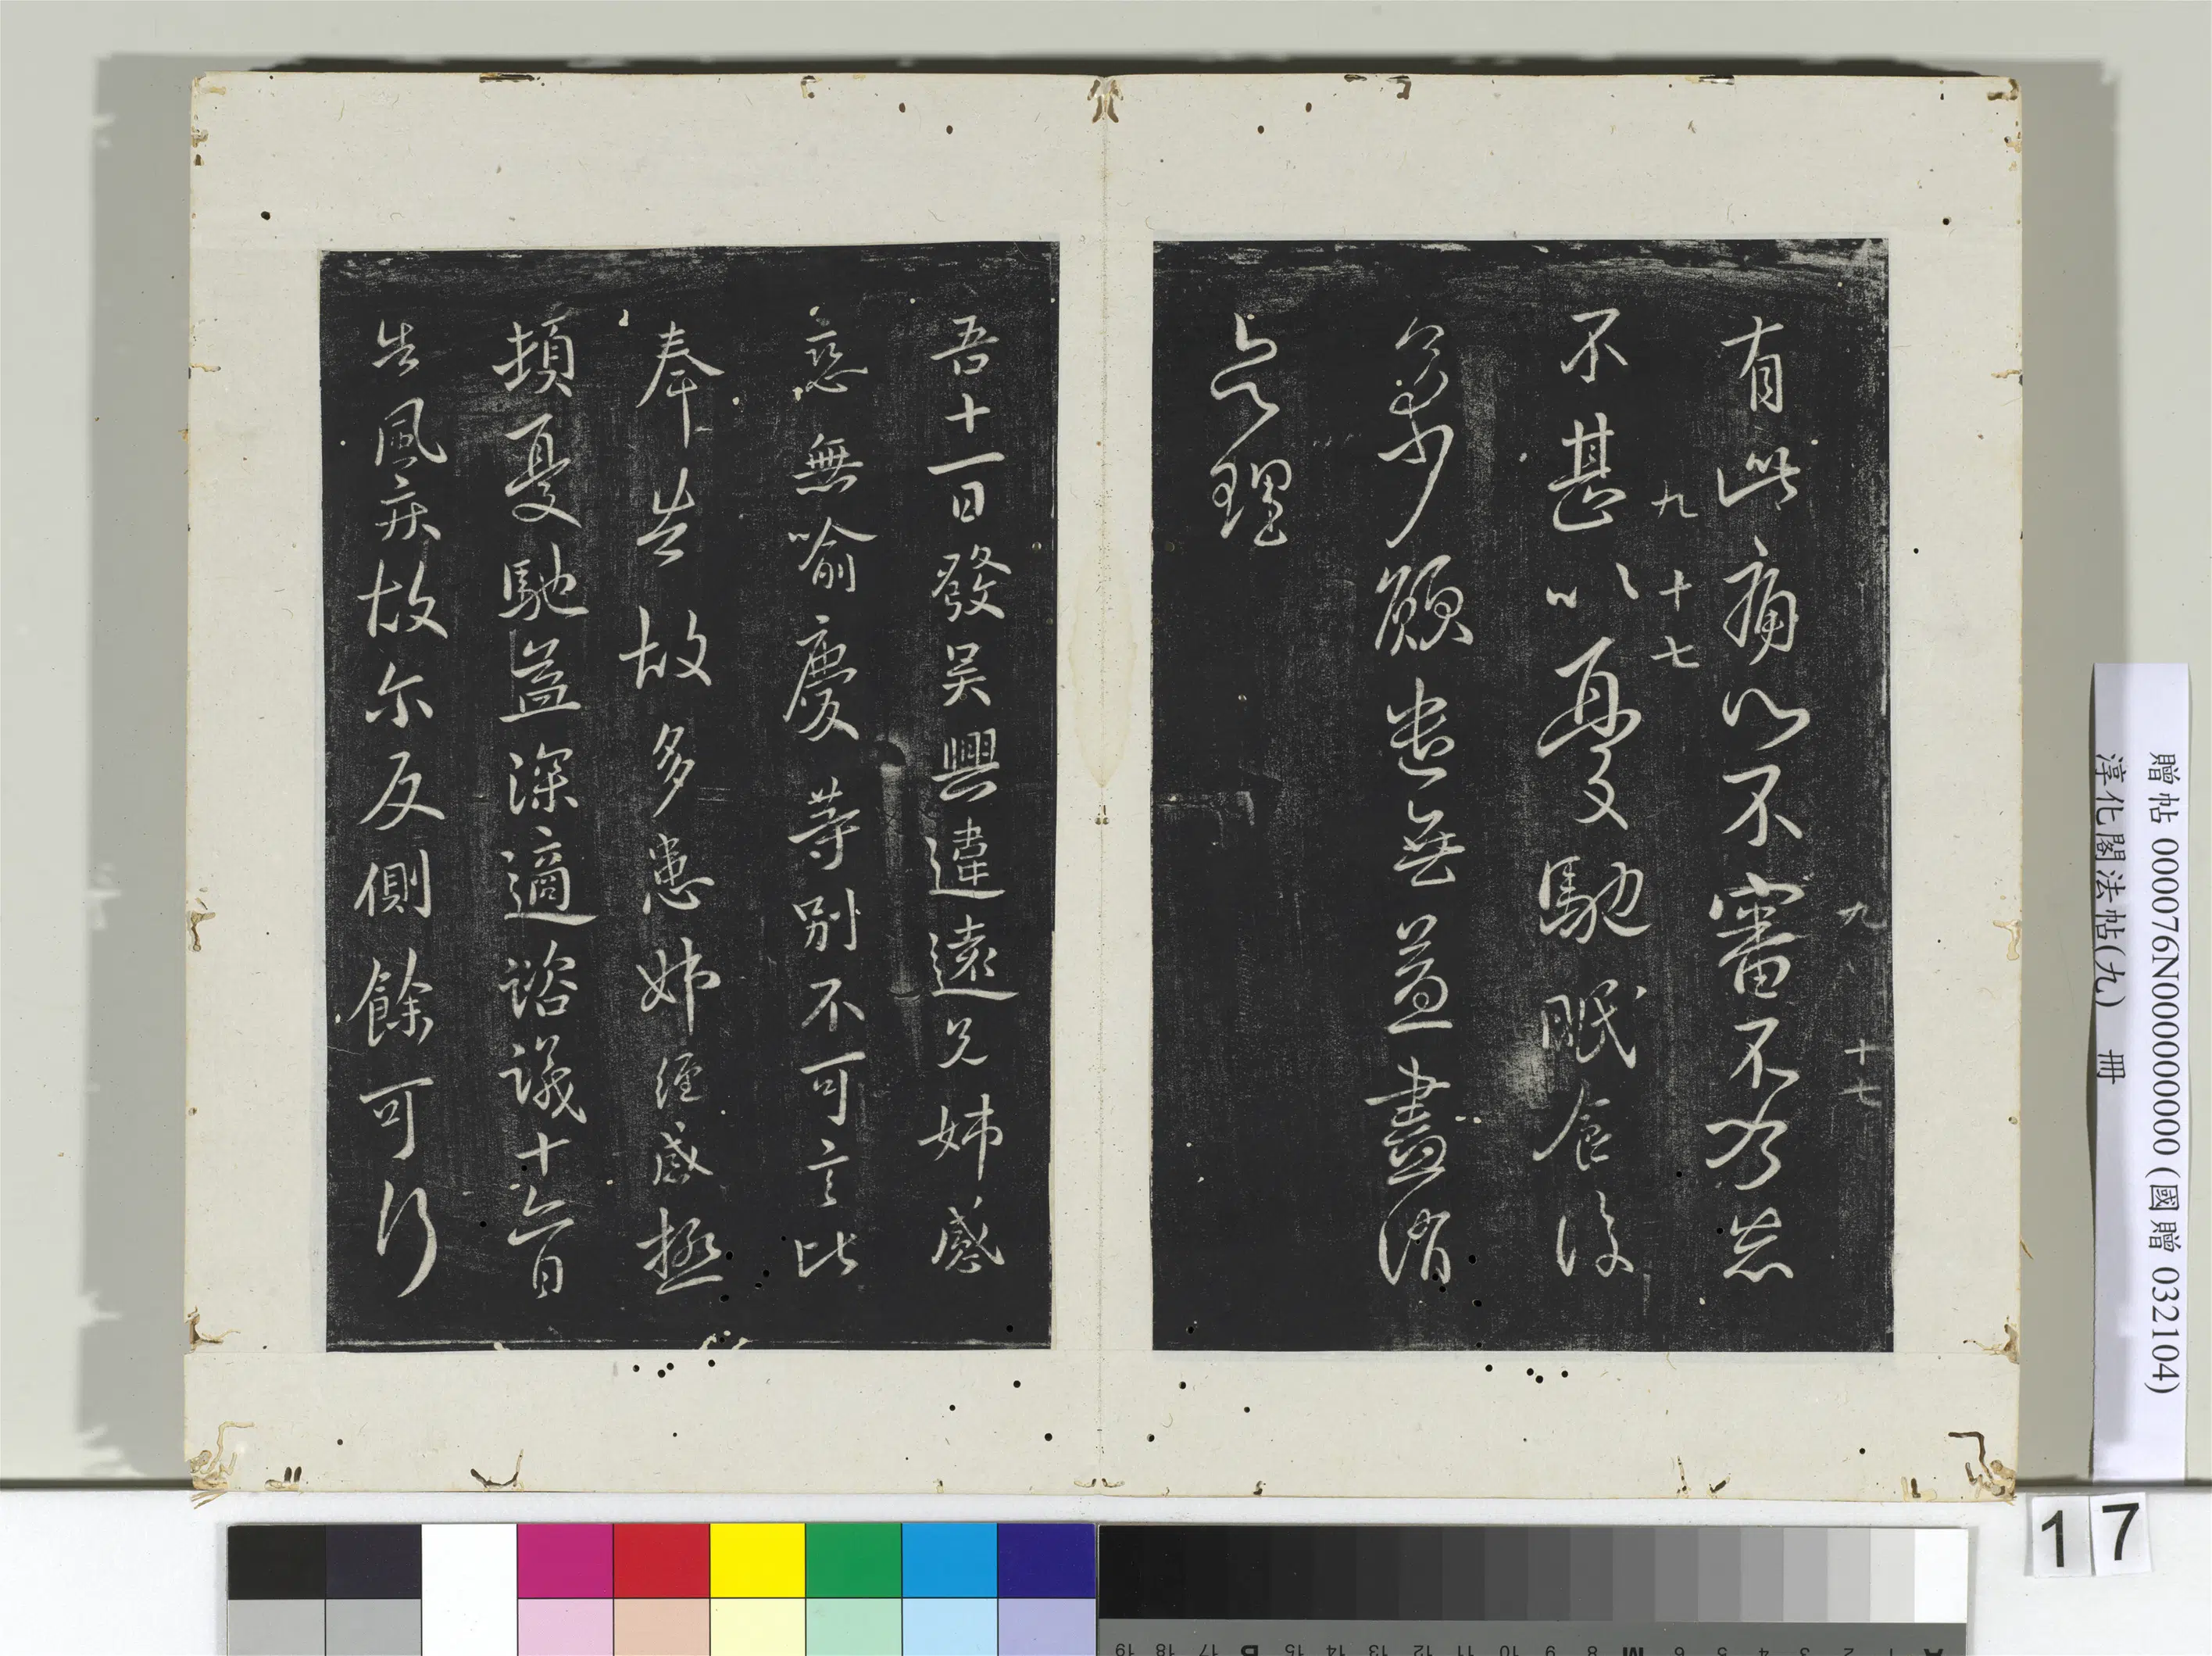 有此痛以不審不為患
不甚以憂馳眠食復
少願盡消
理
九 十七
九 十七
吾十一日發吳興違遠兄姊感
戀無喻慶等別不可言比
奉告故多患姊經感極
頓憂馳益深適諮議十六日
告風疾故尔反側餘可行
贈帖 000076N000000000 (國贈 032104)
淳化閣法帖(九) 冊
17